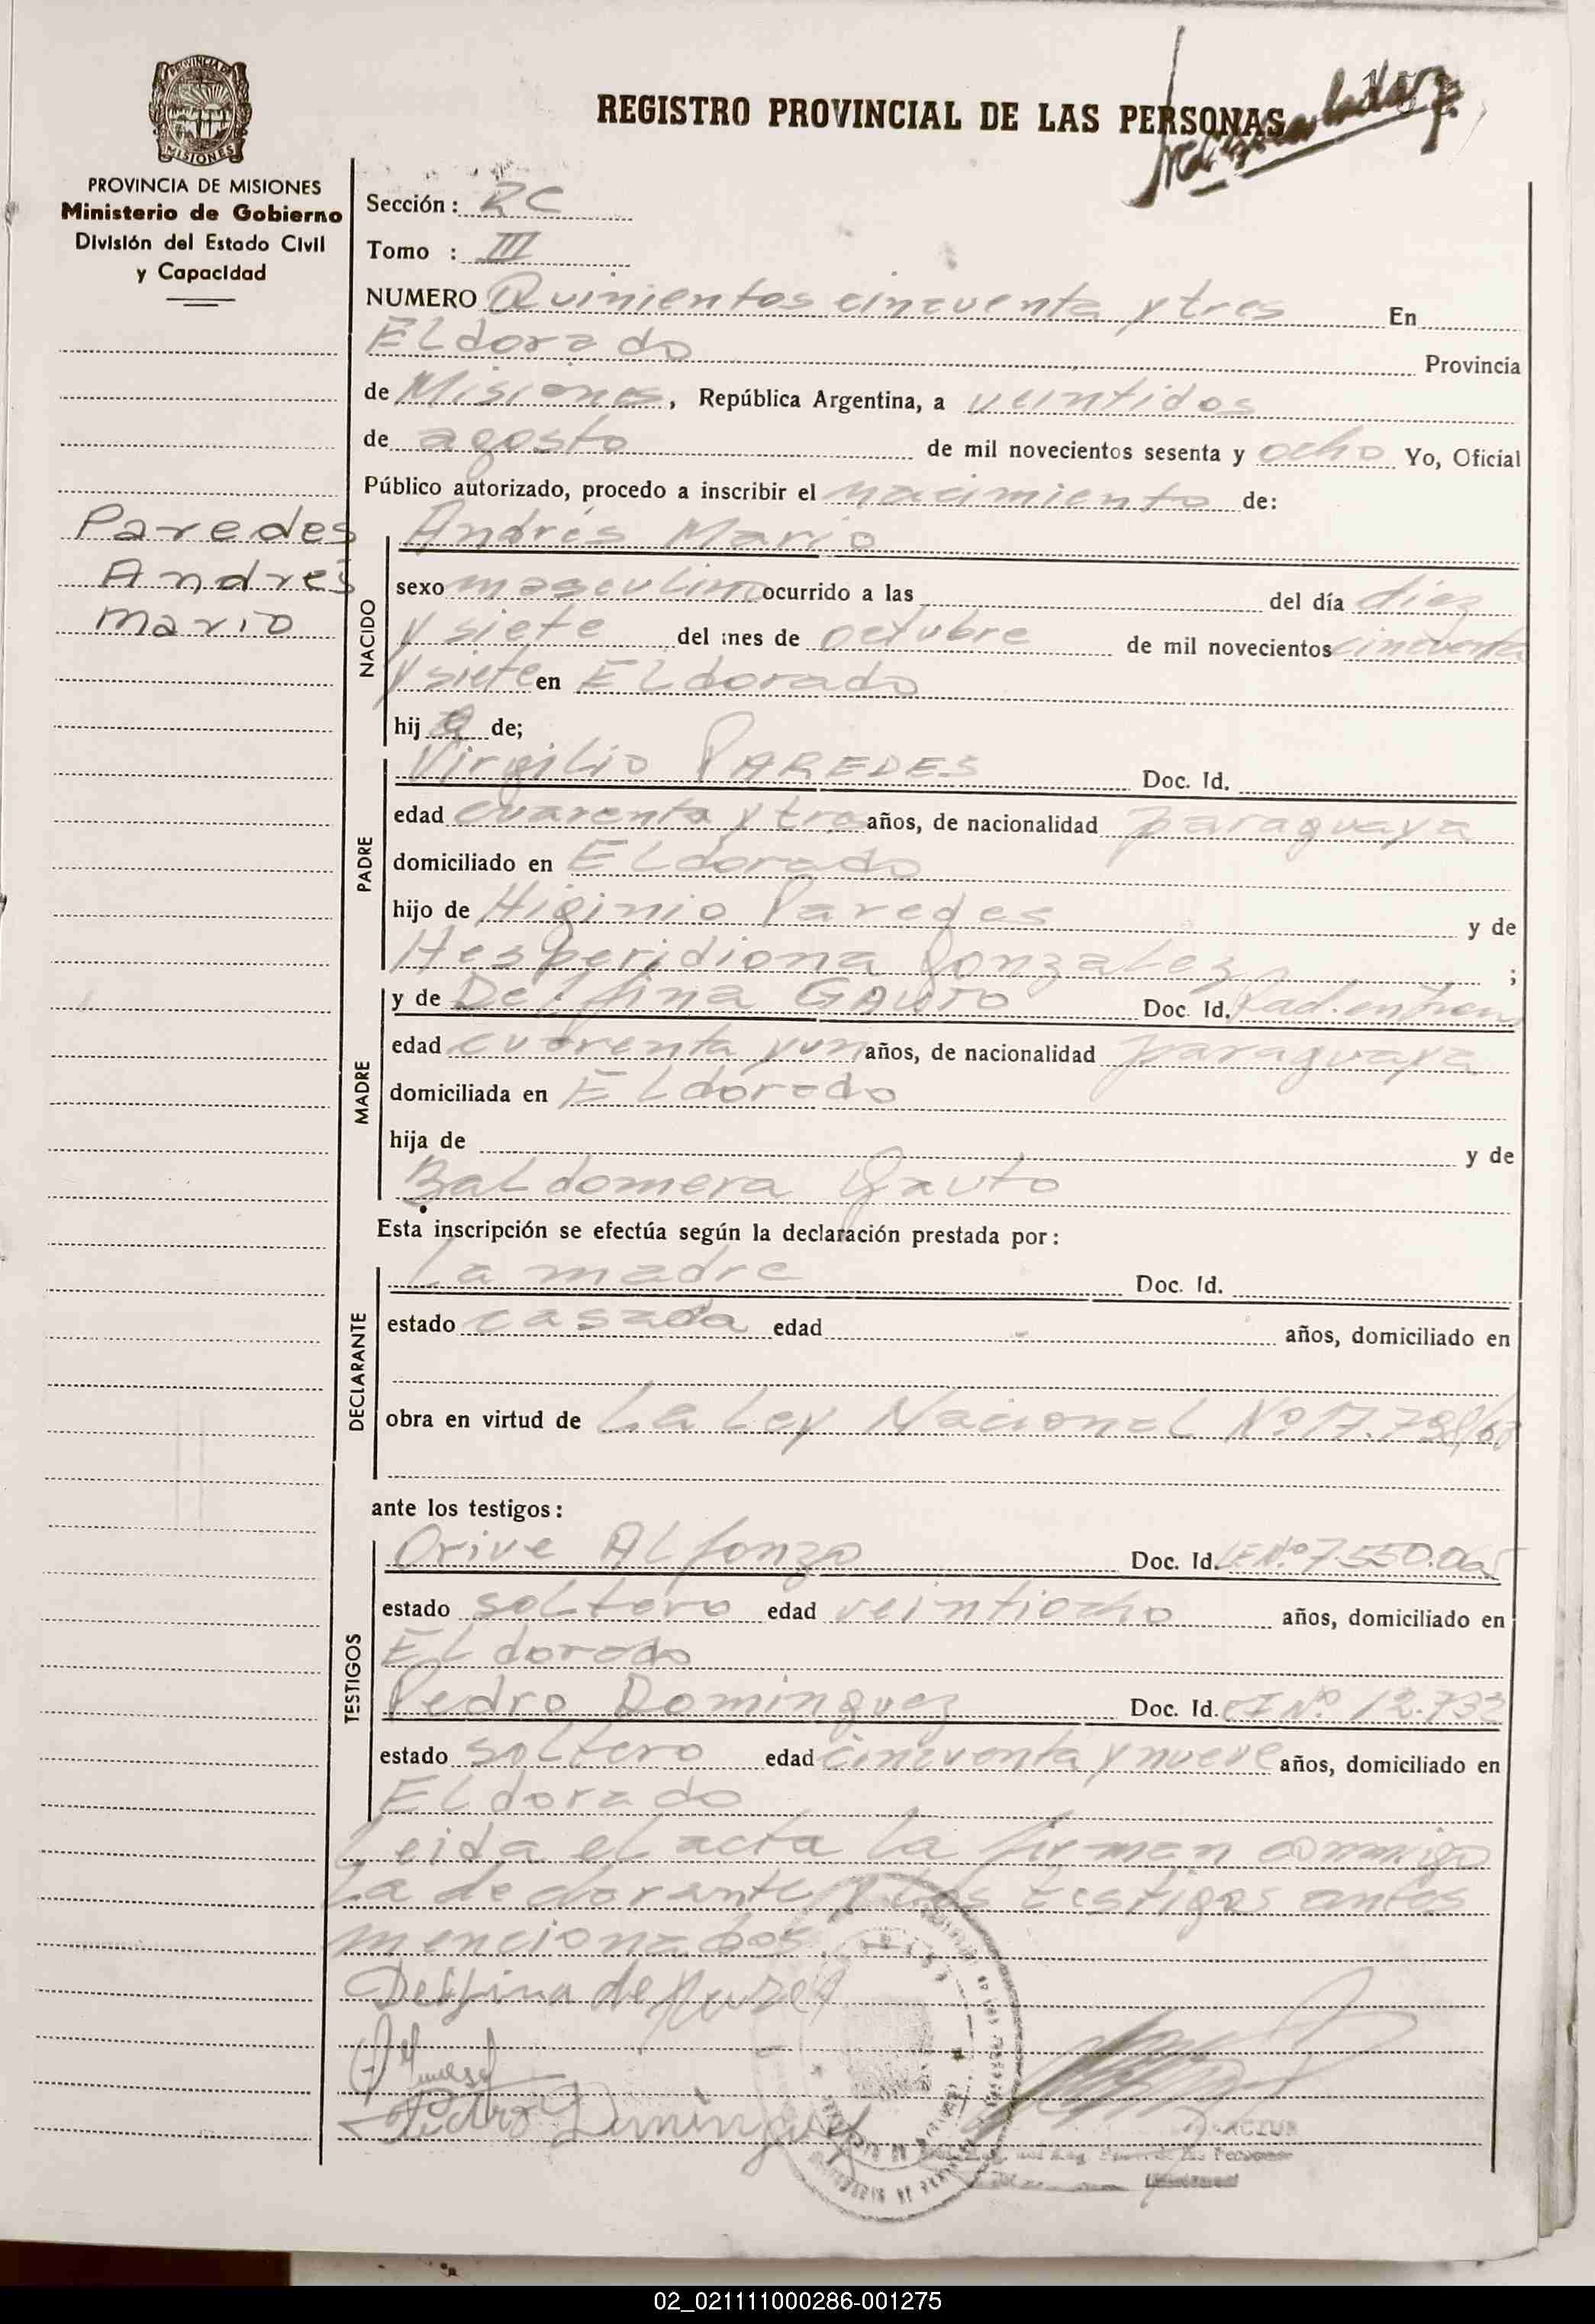 PROVINCIA DE
MISIONES
PROVINCIA DE MISIONES
Ministerio de Gobierno
División del Estado Civil
y Capacidad
REGISTRO PROVINCIAL DE LAS PERSONAS
Sección: RC
Tomo : III
NUMERO Quinientos cincuenta y tres En
ELdorado Provincia
de Misiones, República Argentina, a veintidos
de agosto de mil novecientos sesenta y ocho Yo, Oficial
Público autorizado, procedo a inscribir el nacimiento de:
Paredes
Andrés
Mario
NACIDO
Andrés Mario
sexo masculino ocurrido a las del día diez
y siete del mes de octubre de mil novecientos cincuenta
y siete en ELdorado
hijo de;
PADRE
Virgilio PAREDES Doc. Id.
edad cuarenta y tres años, de nacionalidad paraguaya
domiciliado en ELdorado
hijo de Higinio Paredes y de
Hesperidiona Gonzalez ;
MADRE
y de Delfina GAUTO Doc. Id. Rad. en
edad cuarenta y un años, de nacionalidad paraguaya
domiciliada en ELdorado
hija de y de
BaLdomera Gauto
Esta inscripción se efectúa según la declaración prestada por:
DECLARANTE
La madre Doc. Id.
estado casada edad años, domiciliado en
obra en virtud de La Ley NacionaL Nº 17.798/68
ante los testigos:
TESTIGOS
Orive ALfonzo Doc. Id. LE Nº 7.550.065
estado soLtero edad veintiocho años, domiciliado en
ELdorado
Pedro Dominguez Doc. Id. CI Nº 12.733
estado soLtero edad cincuenta y nueve años, domiciliado en
ELdorado
Leida eL acta La firman conmigo
La declarante y Los testigos antes
mencionados
Delfina de
Pedro Dominguez
02_021111000286-001275